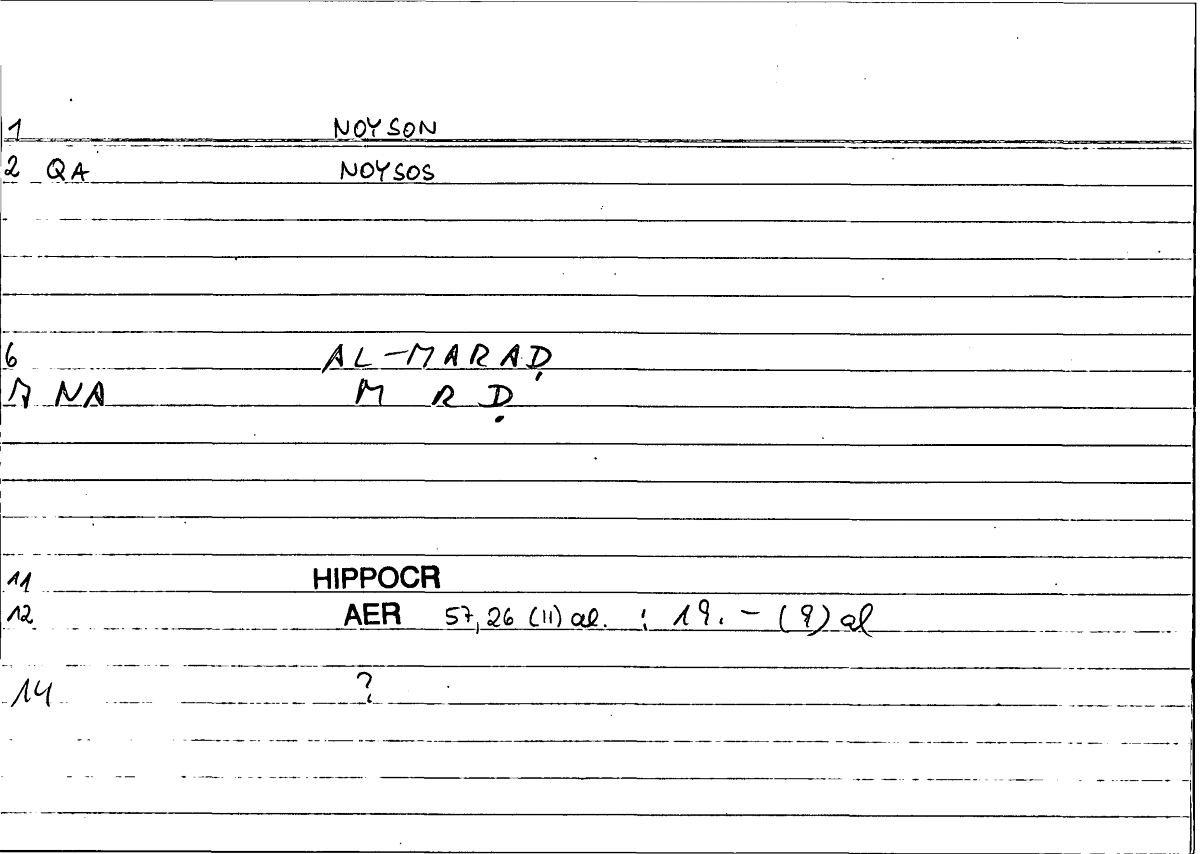 1 NOYSON
2 QA NOYSOS
6 AL-MARAḌ
7 NA M R Ḍ
11 HIPPOCR
12 AER 57,26 (11) al. : 19. - (9) al
14 ?